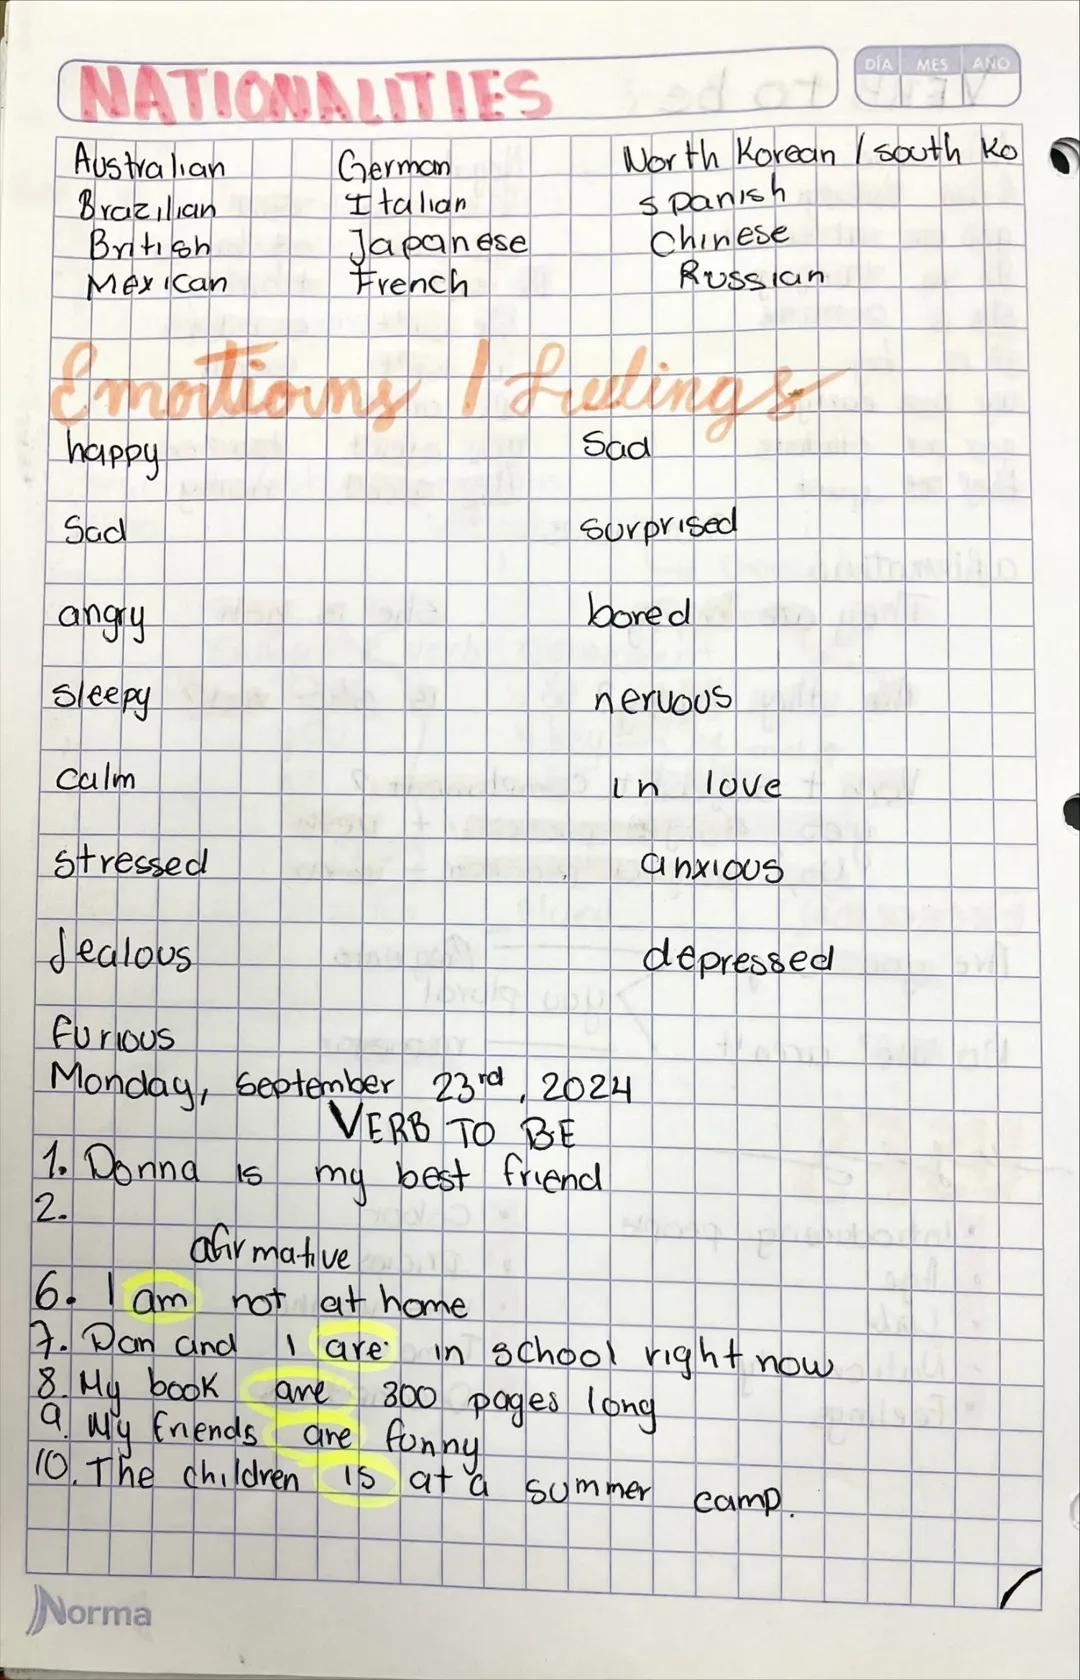 DÍA MES AÑO
NATIONALITIES
Australian German North Korean / south Ko
Brazilian Italian spanish
British Japanese Chinese
Mexican French Russian
Emotions / Feelings
happy Sad
Sad surprised
angry bored
sleepy nervous
calm in love
stressed anxious
Jealous depressed
furious
Monday, september 23rd, 2024
VERB TO BE
1. Donna is my best friend
2.
afirmative
6. I am not at home
7. Dan and I are in school right now
8. My book are 300 pages long
9. My friends are funny
10. The children is at a summer camp.
Norma